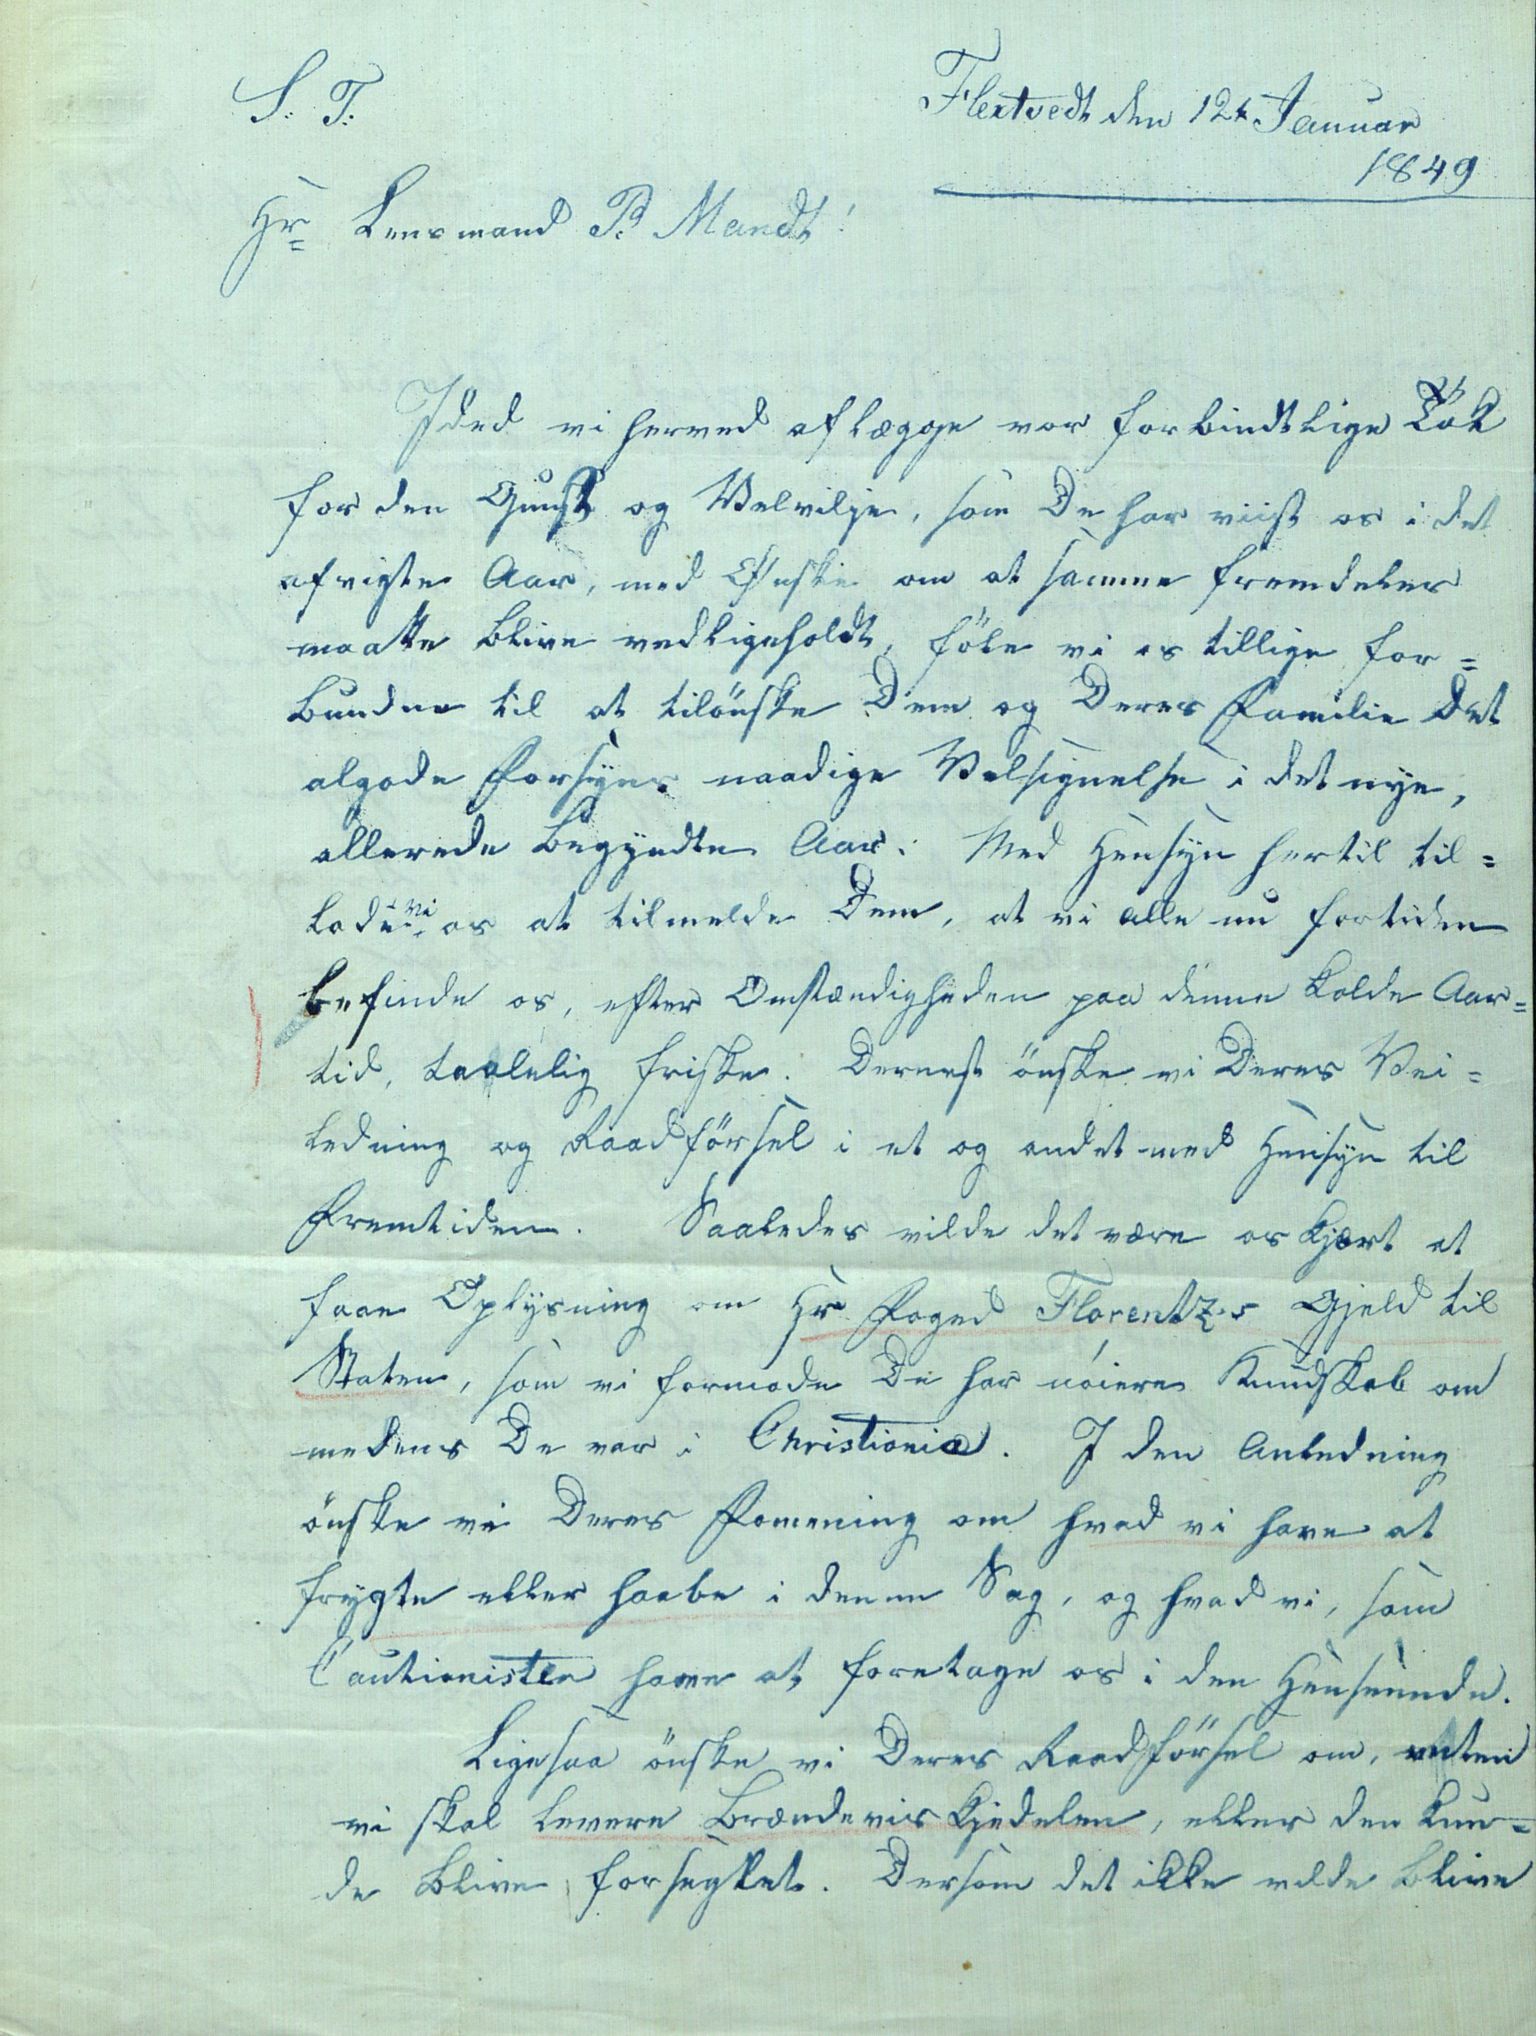 S. T.
Flextvedt den 12te Januar
1849
Hr Lensmand B. Mandt!
Ided vi herved aflægge vor forbindtlige Tak
for den Gunst og Velvilje, som De har viist os i det
afvigte Aar, med Ønske om at samme fremdeles
maatte blive vedligeholdt, föle vi os tillige for=
bundne til at tilönske Dem og Deres Familie Det
algode Forsÿns naadige Velsignelse i det nye,
allerede begyndte Aar. Med Hensyn hertil til=
lade vi os at tilmelde Dem, at vi alle nu fortiden
befinde os, efter Omstændigheden paa denne kolde Aar=
tid, taalelig friske. Dernest önske vi Deres Vei=
ledning og Raadförsel i et og andet med Hensyn til
Fremtiden. Saaledes vilde det være os kjært at
faae Oplysning om Hr Foged Florentz's Gjeld til
Staten, som vi formode De har nöiere Kundskab om
medens De var i Christiania. I den Anledning
önske vi Deres Formening om hvad vi have at
frygte eller haabe i denne Sag, og hvad vi, som
Cautionister have at foretage os i den Henseende.
Ligesaa önske vi Deres Raadförsel om, enten
vi skal levere Brændevinskjedelen, eller den kun=
de blive forseglet. Dersom det ikke vilde blive